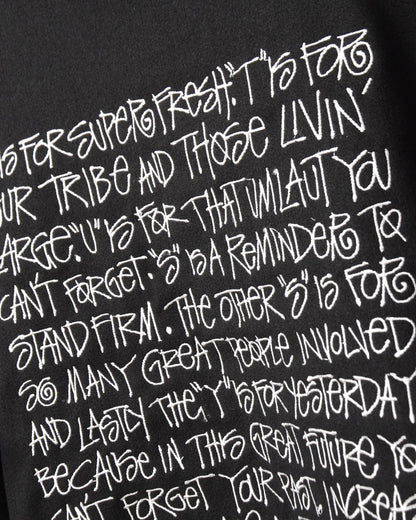 IS FOR SUPER FRESH. "T" IS FOR
UR TRIBE AND THOSE LIVIN'
LARGE. "U" IS FOR THAT UMLAUT YOU
CAN'T FORGET. "S" IS A REMINDER TO
STAND FIRM. THE OTHER "S" IS FOR
SO MANY GREAT PEOPLE INVOLVED
AND LASTLY THE "Y" IS FOR YESTERDAY
BECAUSE IN THIS GREAT FUTURE YO
CAN'T FORGET YOUR PAST, INCREA